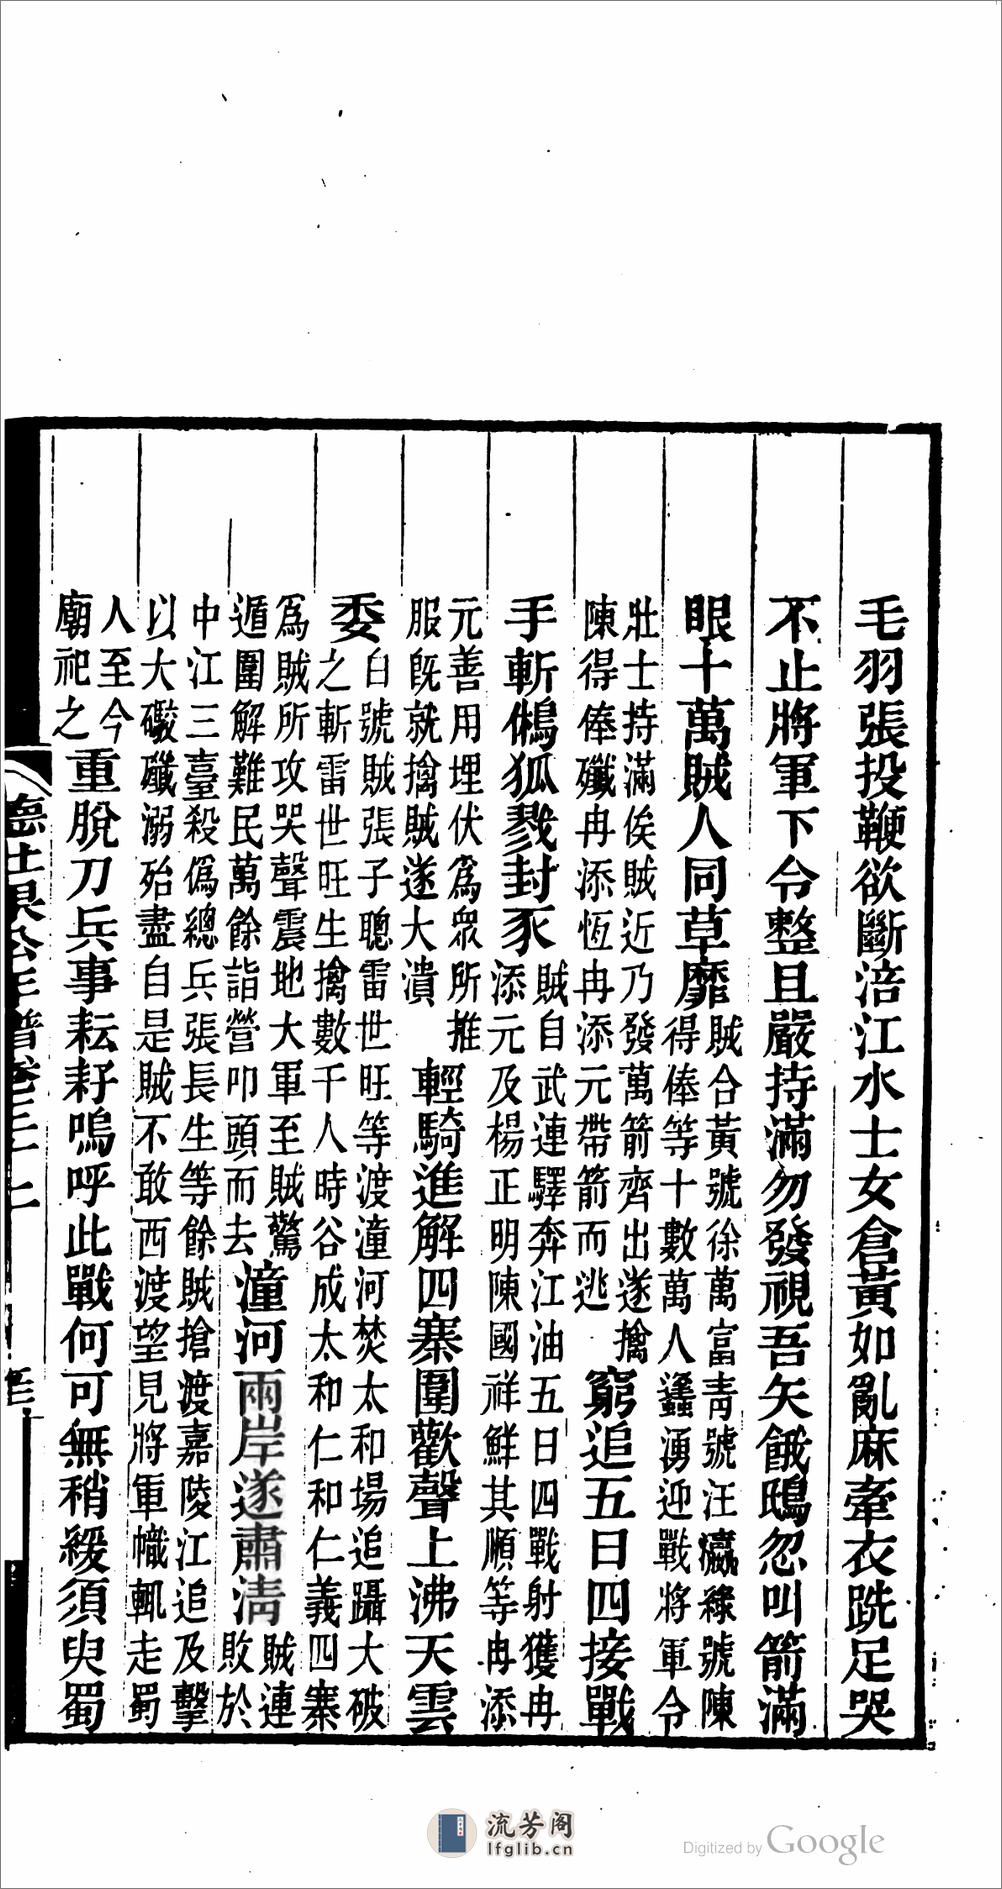 毛羽張投鞭欲斷涪江水士女倉黃如亂麻牽衣跣足哭
不止將軍下令整且嚴持滿勿發視吾矢餓鴟忽叫箭滿
眼十萬賊人同草靡
賊合黃號徐萬富青號汪瀛綠號陳
得俸等十數萬人蠭湧迎戰將軍令
壯士持滿俟賊近乃發萬箭齊出遂擒
陳得俸殲冉添恆冉添元帶箭而逃
窮追五日四接戰
手斬鵂狐戮封豕
賊自武連驛奔江油五日四戰射獲冉
添元及楊正明陳國祥鮮其順等冉添
元善用埋伏爲眾所推
服旣就擒賊遂大潰
輕騎進解四寨圍歡聲上沸天雲
委
白號賊張子聰雷世旺等渡潼河焚太和場追躡大破
之斬雷世旺生擒數千人時谷成太和仁和仁義四寨
爲賊所攻哭聲震地大軍至賊驚
遁圍解難民萬餘詣營叩頭而去
潼河兩岸遂肅清
賊連
敗於
中江三臺殺僞總兵張長生等餘賊搶渡嘉陵江追及擊
以大礮殲溺殆盡自是賊不敢西渡望見將軍幟輒走蜀
人至今
廟祀之
重脫刀兵事耘耔嗚呼此戰何可無稍緩須臾蜀
德壯果公年譜卷三十二
Digitized by Google
流芳阁
lfglib.cn